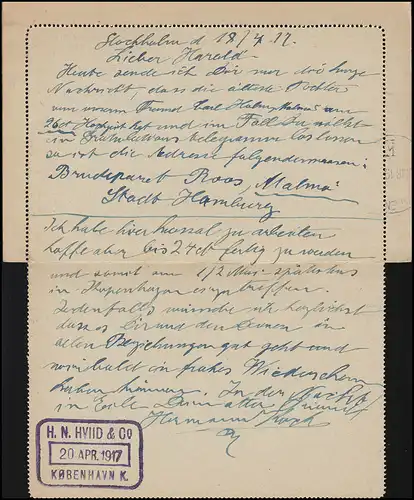 Stockholm d 18/4 17.
Lieber Harald
Heute sende ich Dir nur die kurze
Nachricht, dass die älteste Tochter
von unserm Freund Carl Malmö am
26ct Hochzeit hat und im Fall Du willst
ein Gratulations telegramm loslassen
so ist die Adresse folgendermassen:
Brudeparet Roos, Malmö
Stadt Hamburg
Ich habe hier kurzal zu arbeiten
hoffe aber bis 24ct fertig zu werden
und somit am 1/2 Mai spätestens
in Kopenhagen einzutreffen.
Jedenfalls wünsche ich herzlichst
dass es Dir und den Deinen in
allen Beziehungen gut geht und
wir bald ein frohes Wiedersehen
haben können. In der
in Eile Dein alter Freund
Hermann
H. N. HVIID & Co
20 APR. 1917
KØBENHAVN K.